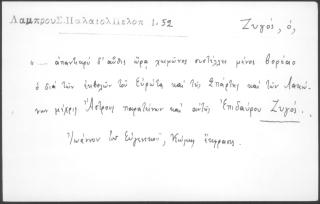 Λαμπρου Σ. Παλαιολ Πελοπ 1.52
Ζυγός, ὁ,
"... ἁπανταχῇ δ' αὖθις ὥρα χειμῶνος συστέλλει μένος βορέαο
ὁ διὰ τῶν ἐκβολῶν τοῦ Εὐρώτα καὶ τῆς Σπάρτης καὶ τῶν Λακώ-
νων μέχρις Ἄστρους παρατείνων καὶ αὐτῆς Ἐπιδαύρου Ζυγός.
Ἰωάννου τοῦ Εὐγενικοῦ, Κώμης ἔκφρασις.